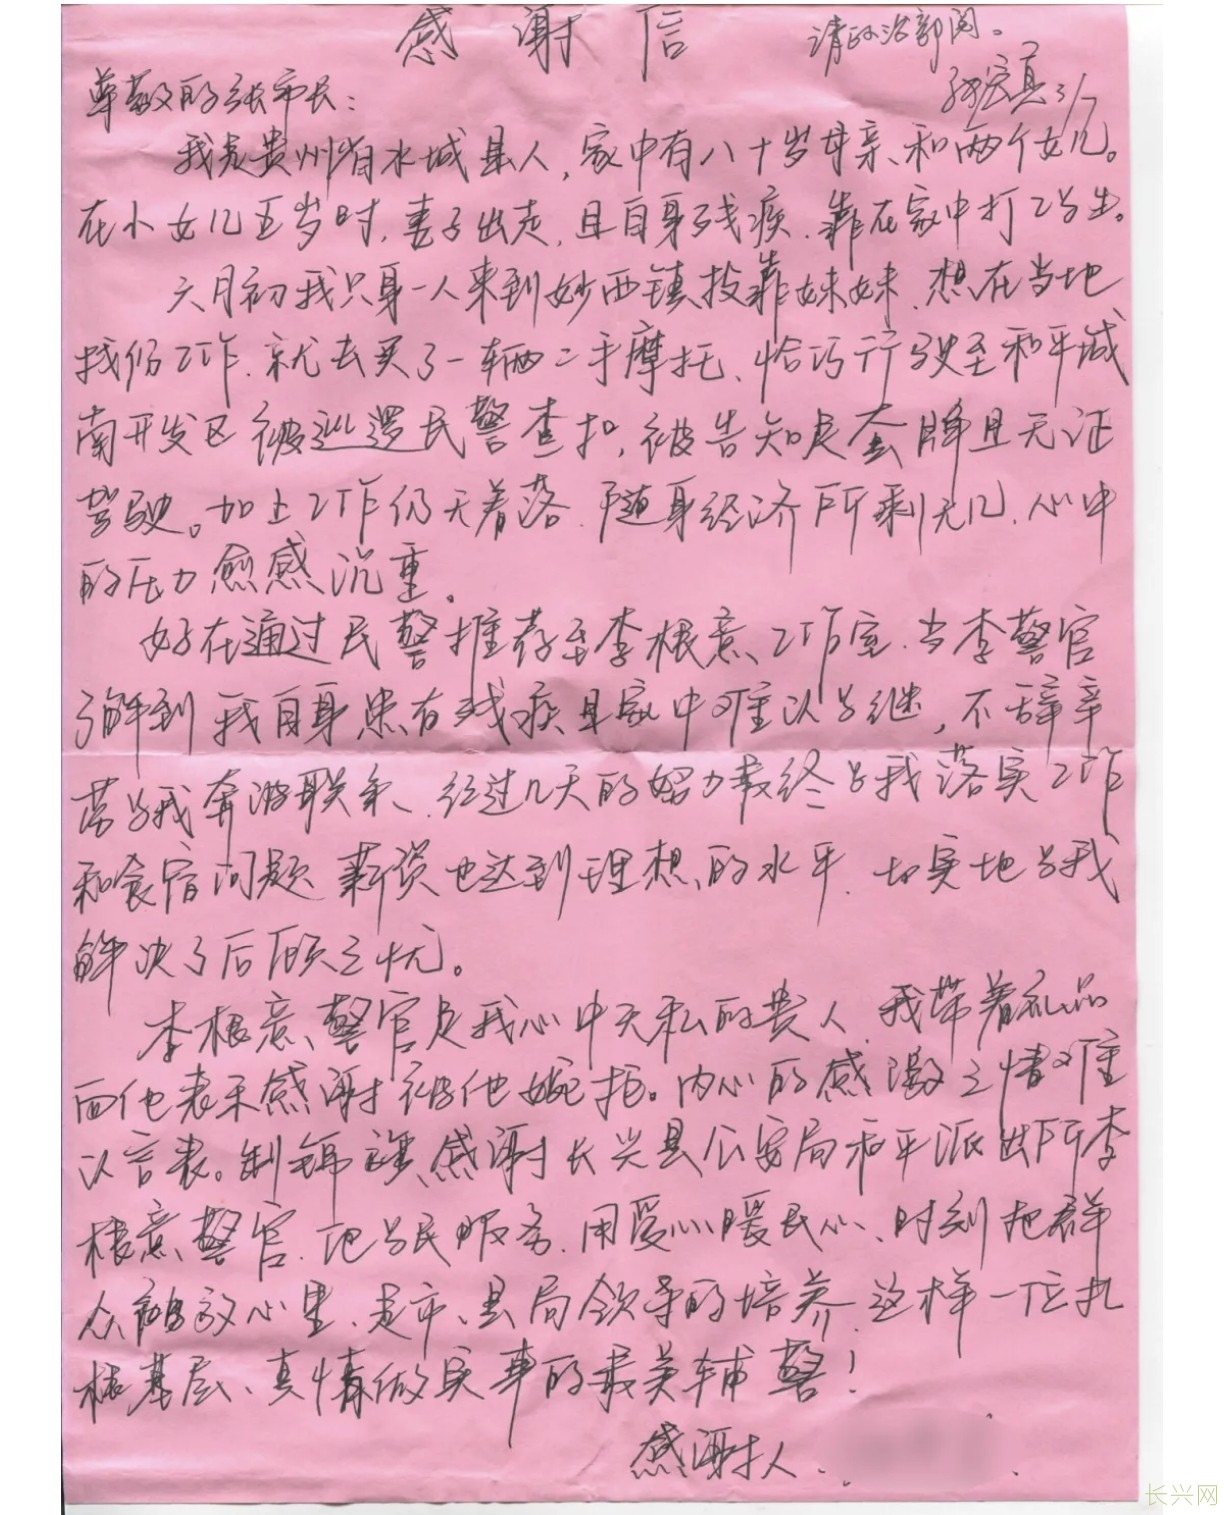 感谢信
请政治部阅。
3/7
尊敬的张市长：
我是贵州省水城县人，家中有八十岁母亲、和两个女儿。
在小女儿五岁时，妻子出走，且自身残疾，靠在家中打工为生。
六月初我只身一人来到妙西镇投靠妹妹，想在当地
找份工作，就去买了一辆二手摩托、恰巧行驶至和平城
南开发区被巡逻民警查扣，被告知是套牌且无证
驾驶。加上工作仍无着落，随身经济所剩无几，心中
的压力愈感沉重。
好在通过民警推荐至李根意工作室，当李警官
了解到我自身患有残疾且家中难以为继，不辞辛
劳为我奔波联系、经过几天的努力最终为我落实工作
和食宿问题，薪资也达到理想的水平，切实地为我
解决了后顾之忧。
李根意警官是我心中无私的贵人，我带着礼品
面他表示感谢被他婉拒。内心的感激之情难
以言表。制锦旗感谢长兴县公安局和平派出所李
根意警官，他为民服务，用爱心暖民心、时刻把群
众放心里、是市、县局领导的培养，这样一位扎
根基层、真情做实事的最美辅警！
感谢人
长兴网